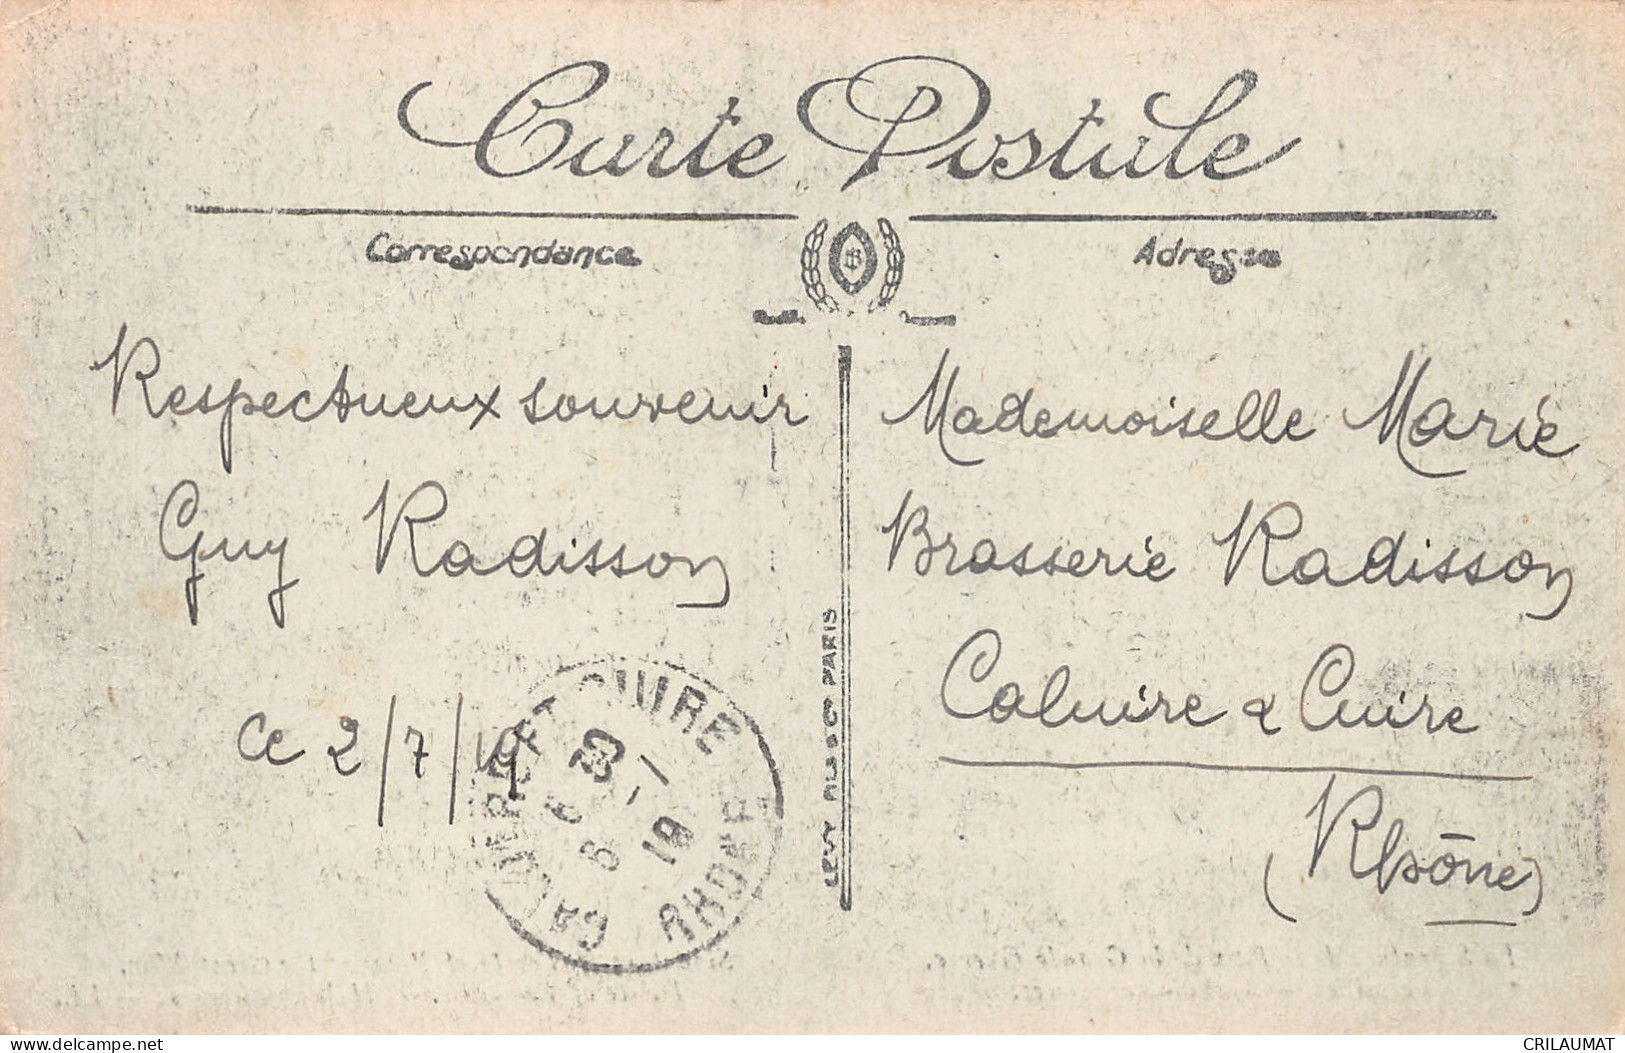 Carte Postale
Correspondance
Adresse
Respectueux souvenir
Guy Radisson
Ce 2/7/19
Mademoiselle Marie
Brasserie Radisson
Caluire & Cuire
(Rhône)
LEVY FILS & Cie PARIS
CALUIRE ET CUIRE
RHONE
delcampe.net
CRILAUMAT